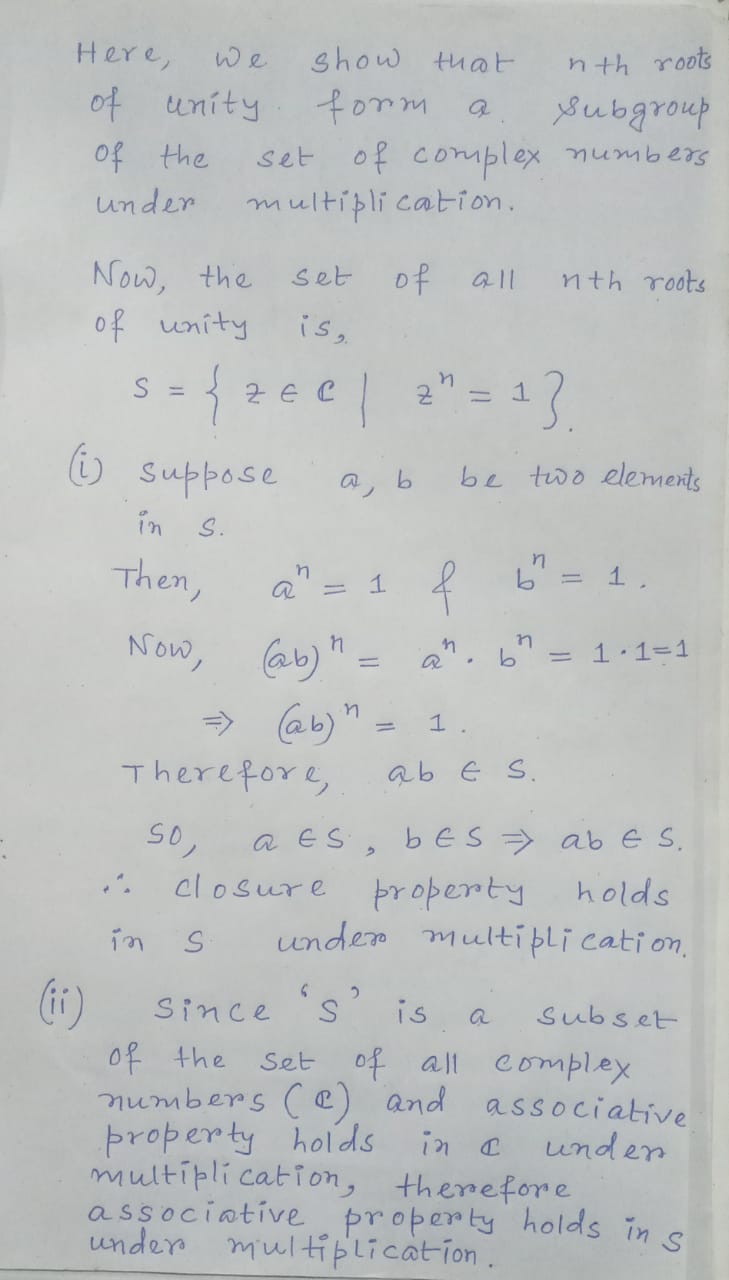 Here, we show that nth roots
of unity form a subgroup
of the set of complex numbers
under multiplication.
Now, the set of all nth roots
of unity is,
S = { z ∈ ℂ | zⁿ = 1 }.
(i) suppose a, b be two elements
in S.
Then, aⁿ = 1 & bⁿ = 1.
Now, (ab)ⁿ = aⁿ. bⁿ = 1·1=1
⇒ (ab)ⁿ = 1.
Therefore, ab ∈ S.
so, a ∈ S, b ∈ S ⇒ ab ∈ S.
∴ closure property holds
in S under multiplication.
(ii) since 'S' is a subset
of the set of all complex
numbers (ℂ) and associative
property holds in ℂ under
multiplication, therefore
associative property holds in S
under multiplication.